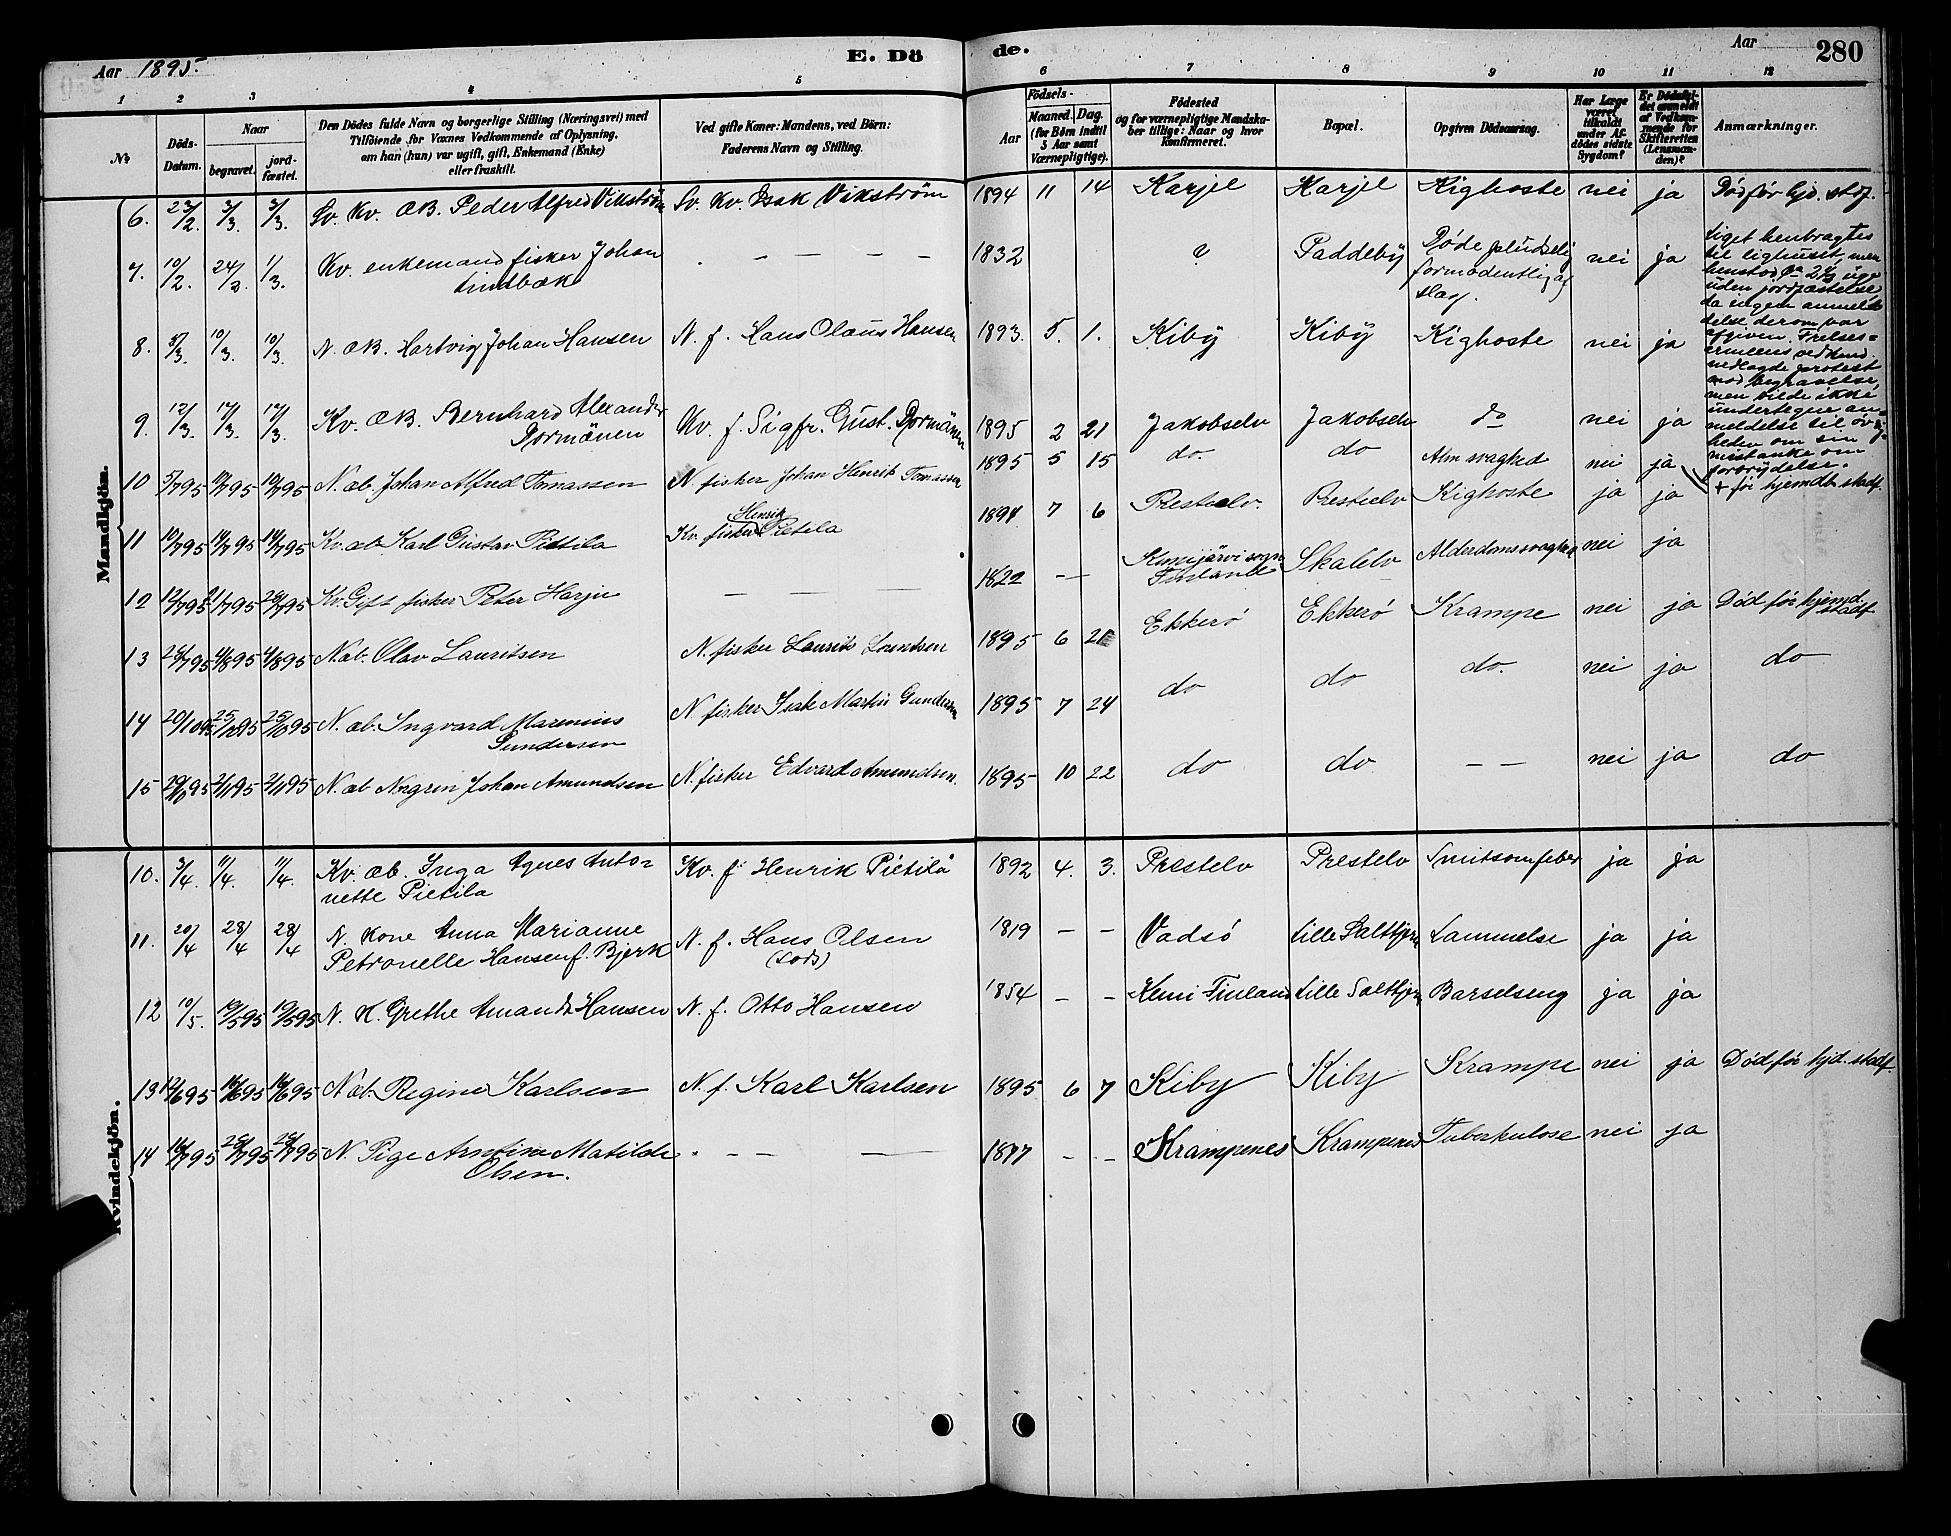 Aar 1895.
E. Dö
de.
Aar
280
1 2 3 4 5 6 7 8 9 10 11 12
No
Döds-Datum.
Naar
begravet.
jord-fæstet.
Den Dödes fulde Navn og borgerlige Stilling (Næringsvei) med
Tilföiende for Voxnes Vedkommende af Oplysning,
om han (hun) var ugift, gift, Enkemand (Enke)
eller fraskilt.
Ved gifte Koner: Mandens, ved Börn:
Faderens Navn og Stilling.
Födsels-
Aar
Maaned. Dag.
(for Börn indtil
5 Aar samt
Værnepligtige).
Födested
og for værnepligtige Mandska-
ber tillige: Naar og hvor
konfirmeret.
Bopæl.
Opgiven Dödsaarsag.
Har Læge
været
tilkaldt
under Af-
dödes sidste
Sygdom?
Er Dödsfal-
det anmeldt
af Vedkom-
mende for
Skifteretten
(Lensman-
den)?
Anmærkninger.
Mandkjön.
6. 23/2. 3/3. 3/3. Sv. Kv. ÆB. Peder Alfred Vikström Sv. Kv. Isak Vikström 1894 11 14 Karjel Karjel Kighoste nei ja Död før hjd. stdf.
7. 10/2. 24/2. 1/3. Kv. enkemand fisker Johan
Lindbæk - — — — — 1832 ? Paddeby Døde pludselig
formodentlig af
slag. nei ja
Liget henbragtes
til lighuset, men
henstod uge
uden jordfæstelse
da ingen anmel-
delse derom var
afgiven. Frelses-
armeens
nedlagde protest
mod begravelse,
men vilde ikke
undertegne an-
meldelse til øv-
heden om sin
mistanke om
forbrydelse.
8. 5/3. 10/3. 10/3. N. ÆB. Hartvig Johan Hansen N. f. Hans Olaus Hansen 1893. 5. 1. Kiby Kiby Kighoste nei ja
9. 12/3. 17/3. 17/3. Kv. ÆB. Bernhard Alexander
Pormänen Kv. f. Sigfr. Gust. Pormänen 1895 2 21 Jakobselv Jakobselv do nei ja
10 5/795 10/795 10/795 N. æb. Johan Alfred Tomassen N fisker Johan Henrik Tomassen 1895 5 15 do. do Alm svaghed nei ja + før hjemdb stadf.
11 10/795 14/795 14/795 Kv. æb. Karl Gustav Pietila Kv. fisker Henrik Pietila 1894 7 6 Prestelv. Prestelv Kighoste ja ja
12 12/795 21/795 28/795 Kv. Gift fisker Peter Harju — — — 1822 — — Kemijärvi sogn
Finland Skalelv Alderdomssvaghed nei ja
13 28/795 4/895 4/895 N. æb. Olav Lauritsen N. fisker Laurits 1895 6 Ekkerö Ekkerö Krampe nei ja Død før hjemd
stadf
14 20/1095 25/1095 25/1095 N. æb. Ingvard Marenius
Gundersen N fisker Isak Martin Gundersen 1895 7 24 do do do. nei ja do
15 2/1195 2/1195 N. æb Johan Amundsen N. fisker Edvard Amundsen. 1895 10 22 do do — — nei ja do
Kvindekjön.
10. 3/4. 11/4. 11/4. Kv. æb. Inga Agnes Anto-
nette Pietila Kv. f Henrik Pietilä 1892 4. 3. Prestelv Prestelv Smitsom feber ja ja
11. 20/4 28/4 28/4 N. Kone Anna Marianne
Petronelle Hansen f. Bjerk N. f. Hans Olsen
(Lods) 1819 – – Vadsö Lille Saltbjern Lammelse ja ja
12 10/5. 19/595 19/595 N. K. Grethe Amanda Hansen N. f. Otto Hansen 1854 – – Kemi Finland Lille Saltbjern Barselseng ja ja
13 12/695 16/695 16/695 N æb. Regine Karlsen N. f. Karl Karlsen 1895 6 7 Kiby Kiby Krampe nei ja Død før hjd. stadf.
14 16/795 28/795 28/795 N. Pige Arntine Matilde
Olsen. - — — — 1877 – – Krampenes Krampenes Tuberkulose nei ja